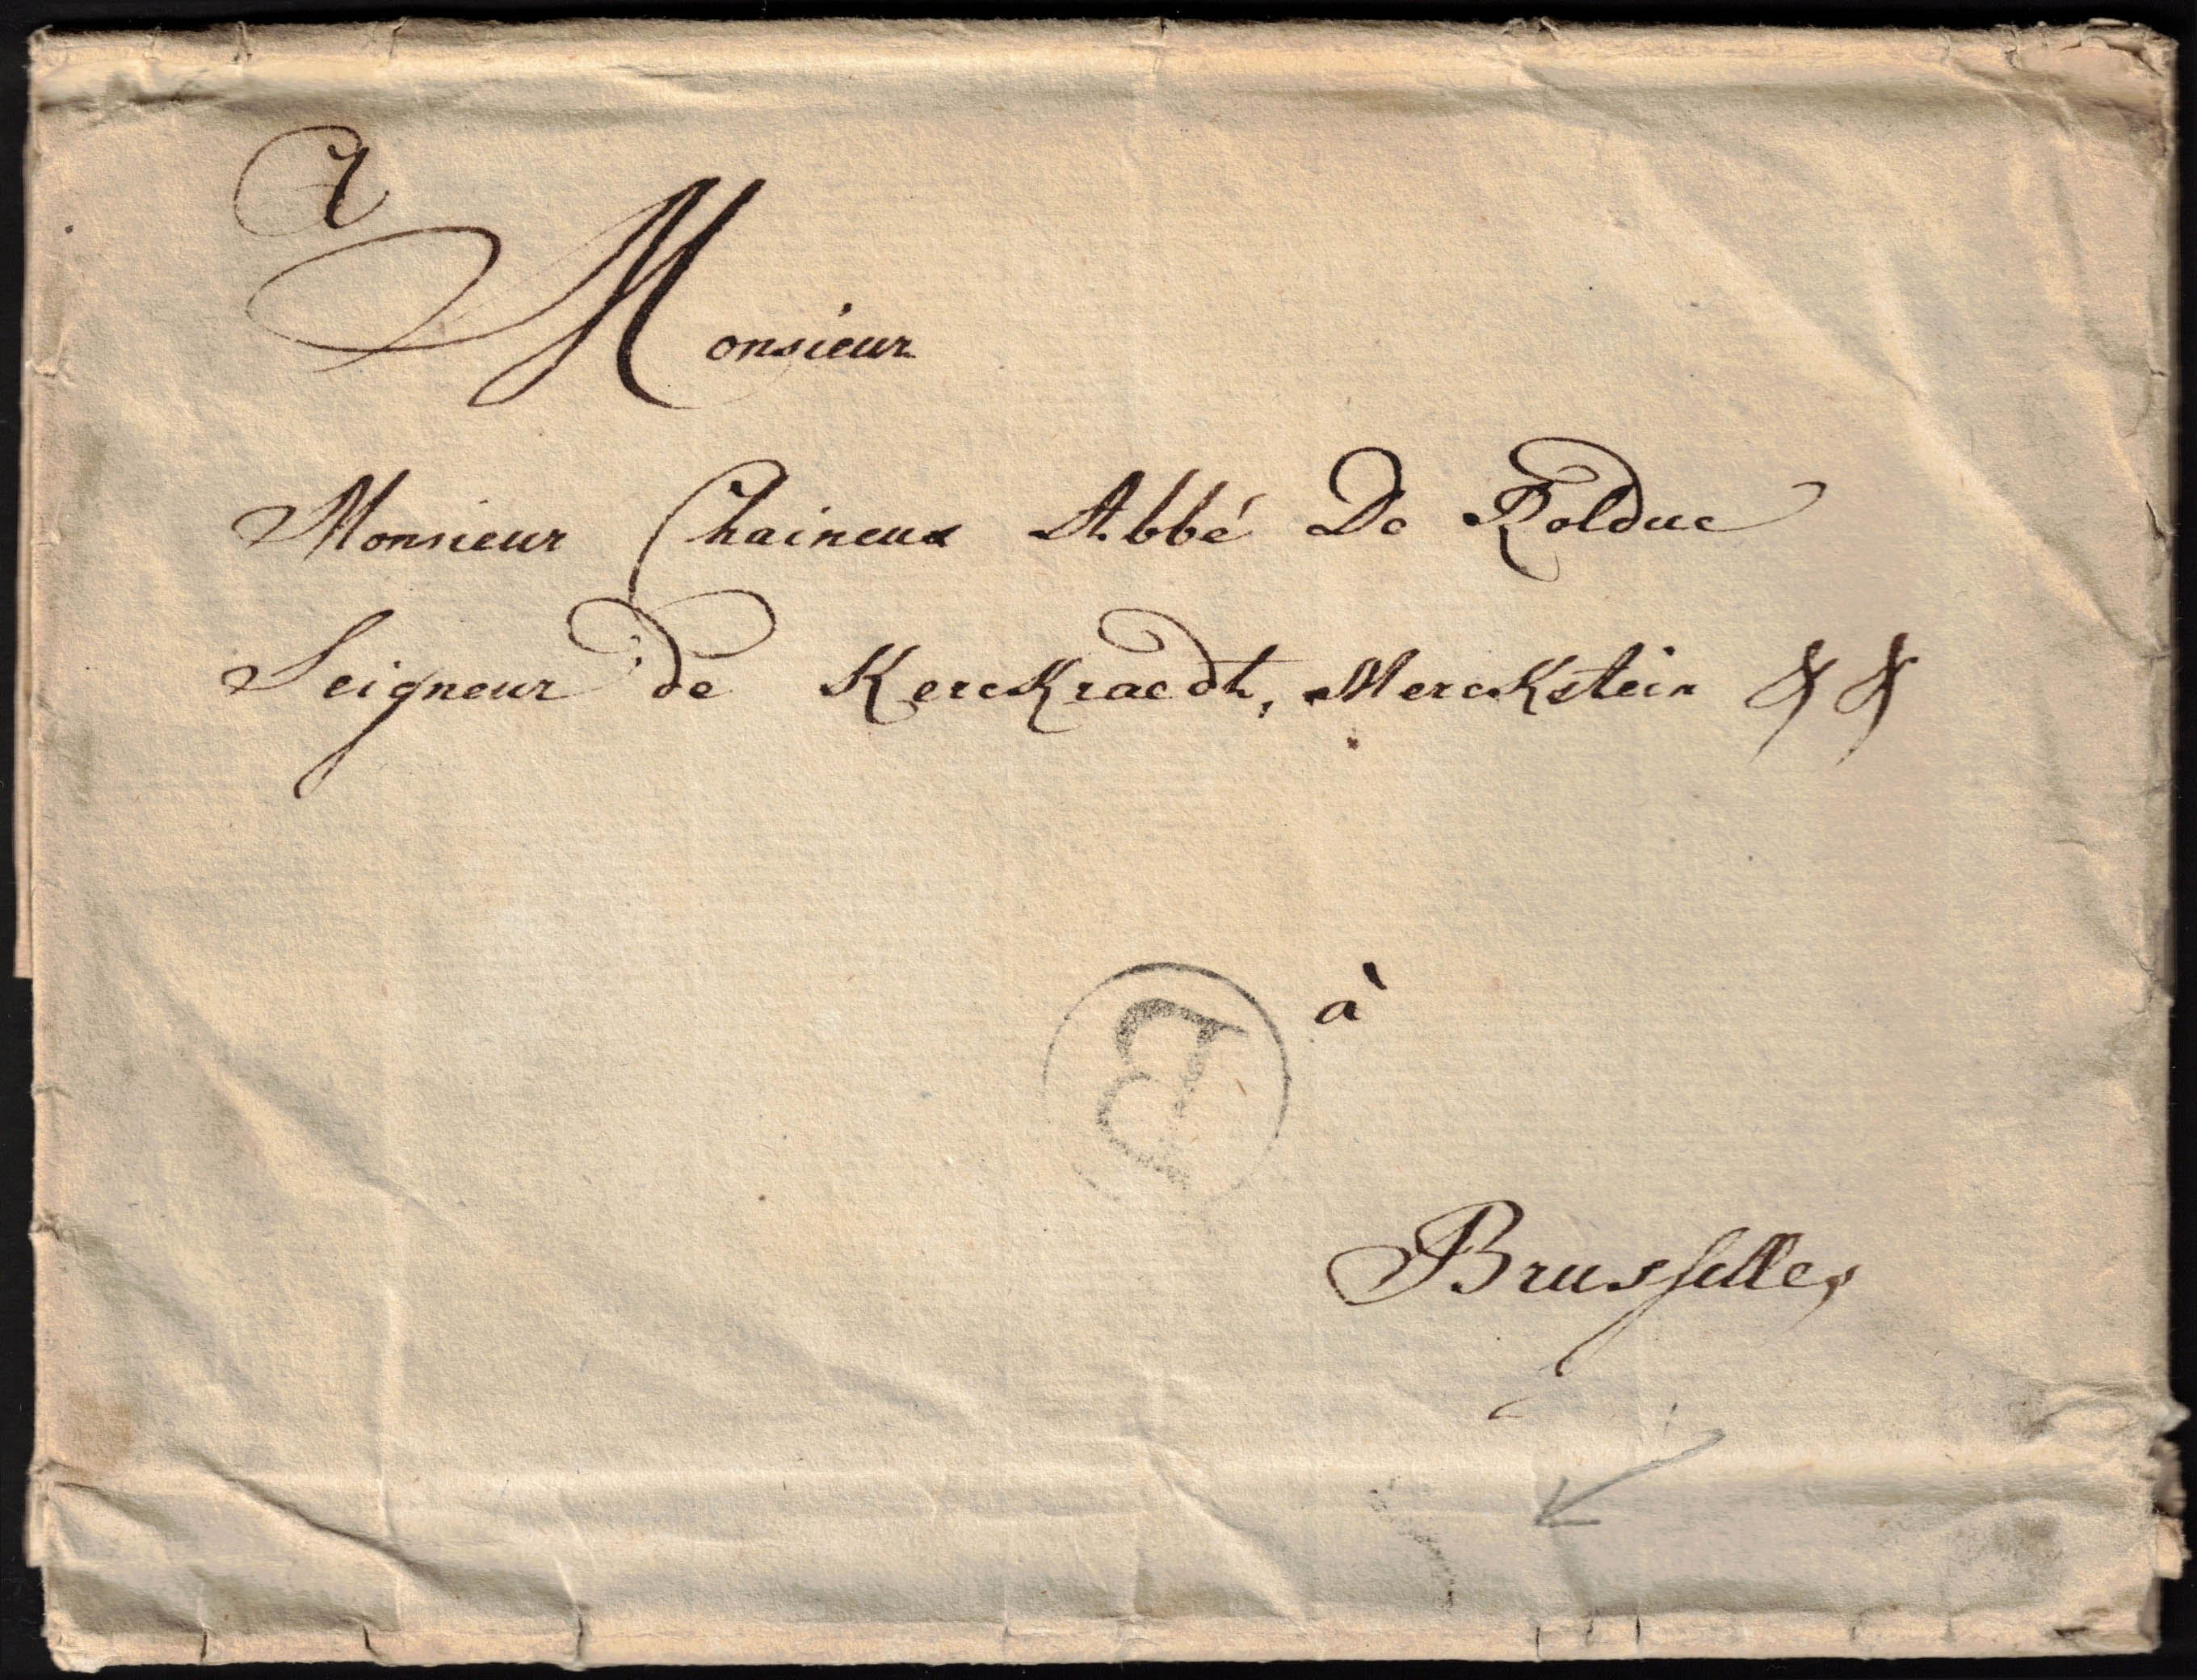 A
Monsieur
Monsieur Chaineux Abbé De Rolduc
Seigneur de KercKraedt, MercKstein & &
à
B
Brusselles